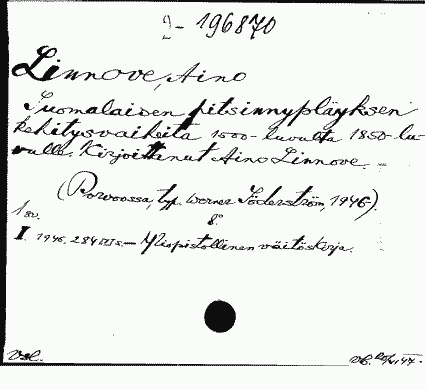 2-196870
Linnove, Aino
Suomalaisen pitsinnypläyksen
kehitysvaiheita 1500-luvulta 1850-lu-
vulle. Kirjoittanut Aino Linnove.
(Porvoossa, typ. Werner Söderström, 1946).
1 sv. 8°
I. 1946. 284 s. — Yliopistollinen väitöskirja.